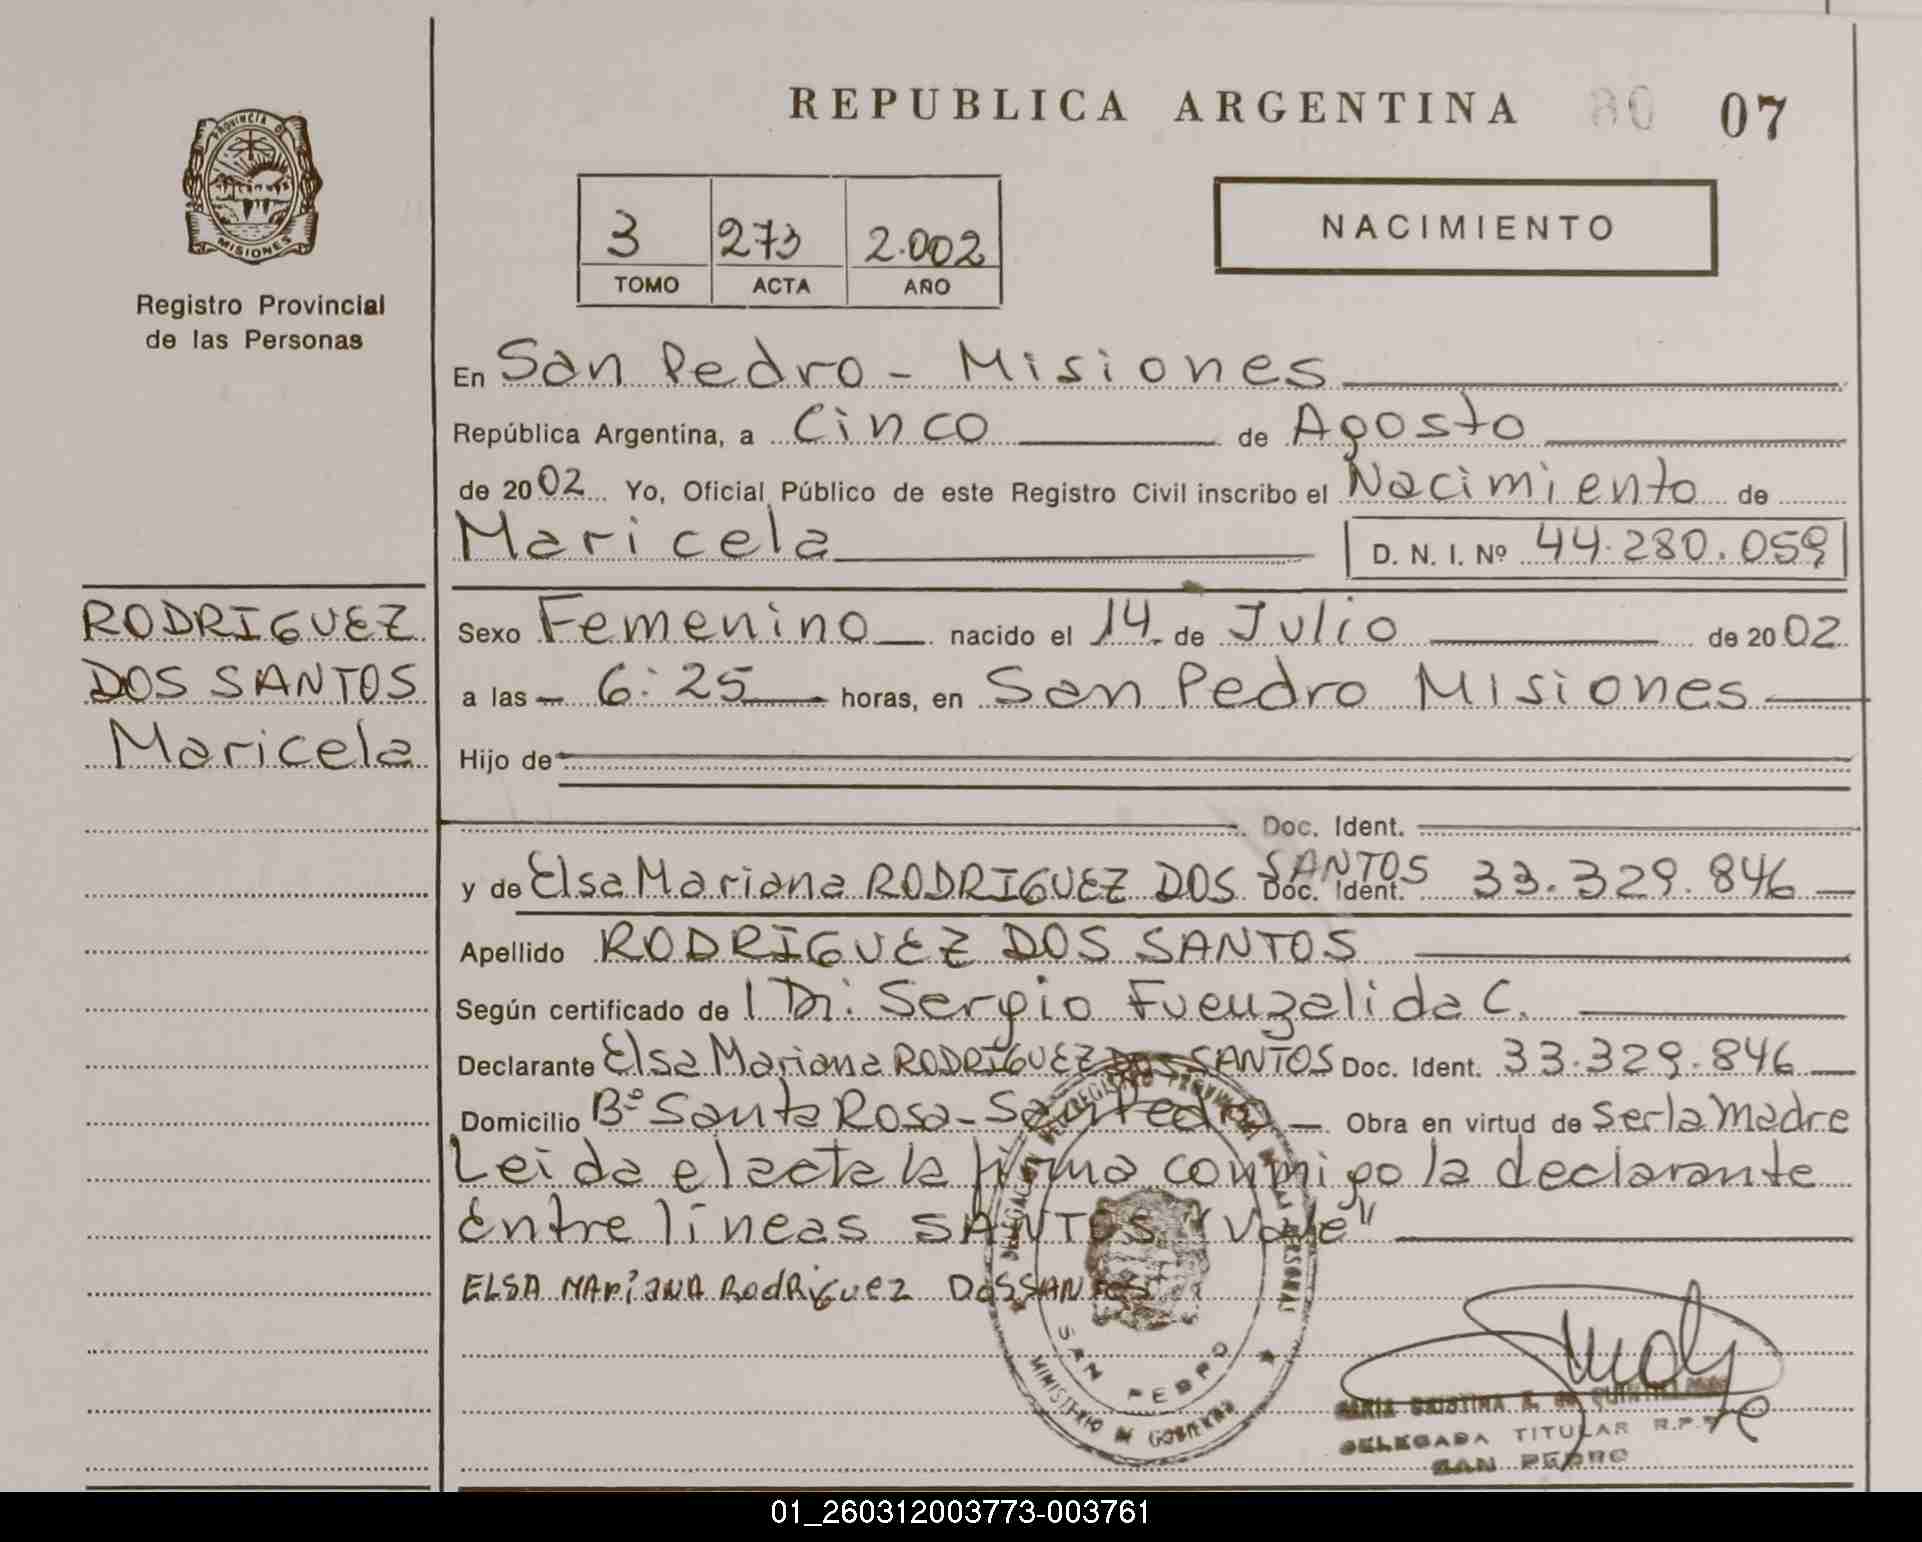 REPUBLICA ARGENTINA 80 07
PROVINCIA DE
MISIONES
Registro Provincial
de las Personas
3 273 2.002
TOMO ACTA AÑO
NACIMIENTO
En San Pedro - Misiones
República Argentina, a Cinco de Agosto
de 2002 Yo, Oficial Público de este Registro Civil inscribo el Nacimiento de
Maricela D. N. I. Nº 44.280.059
RODRIGUEZ
DOS SANTOS
Maricela
Sexo Femenino nacido el 14 de Julio de 2002
a las - 6:25 horas, en San Pedro Misiones
Hijo de
Doc. Ident.
SANTOS
y de Elsa Mariana RODRIGUEZ DOS Doc. Ident. 33.329.846
Apellido RODRIGUEZ DOS SANTOS
Según certificado de Sergio Fuenzalida C.
Declarante Elsa Mariana RODRIGUEZ DOS SANTOS Doc. Ident. 33.329.846
Domicilio Bº Santa Rosa - San Pedro - Obra en virtud de Ser la Madre
Leida el acta la firma conmigo la declarante
Entre líneas SANTOS "Vale"
ELSA MARiANA RodRiguez DosSANTOS
SAN PEDRO
MINISTERIO DE GOBIERNO
MARIA CRISTINA
DELEGADA TITULAR R.P.P.
SAN PEDRO
01_260312003773-003761